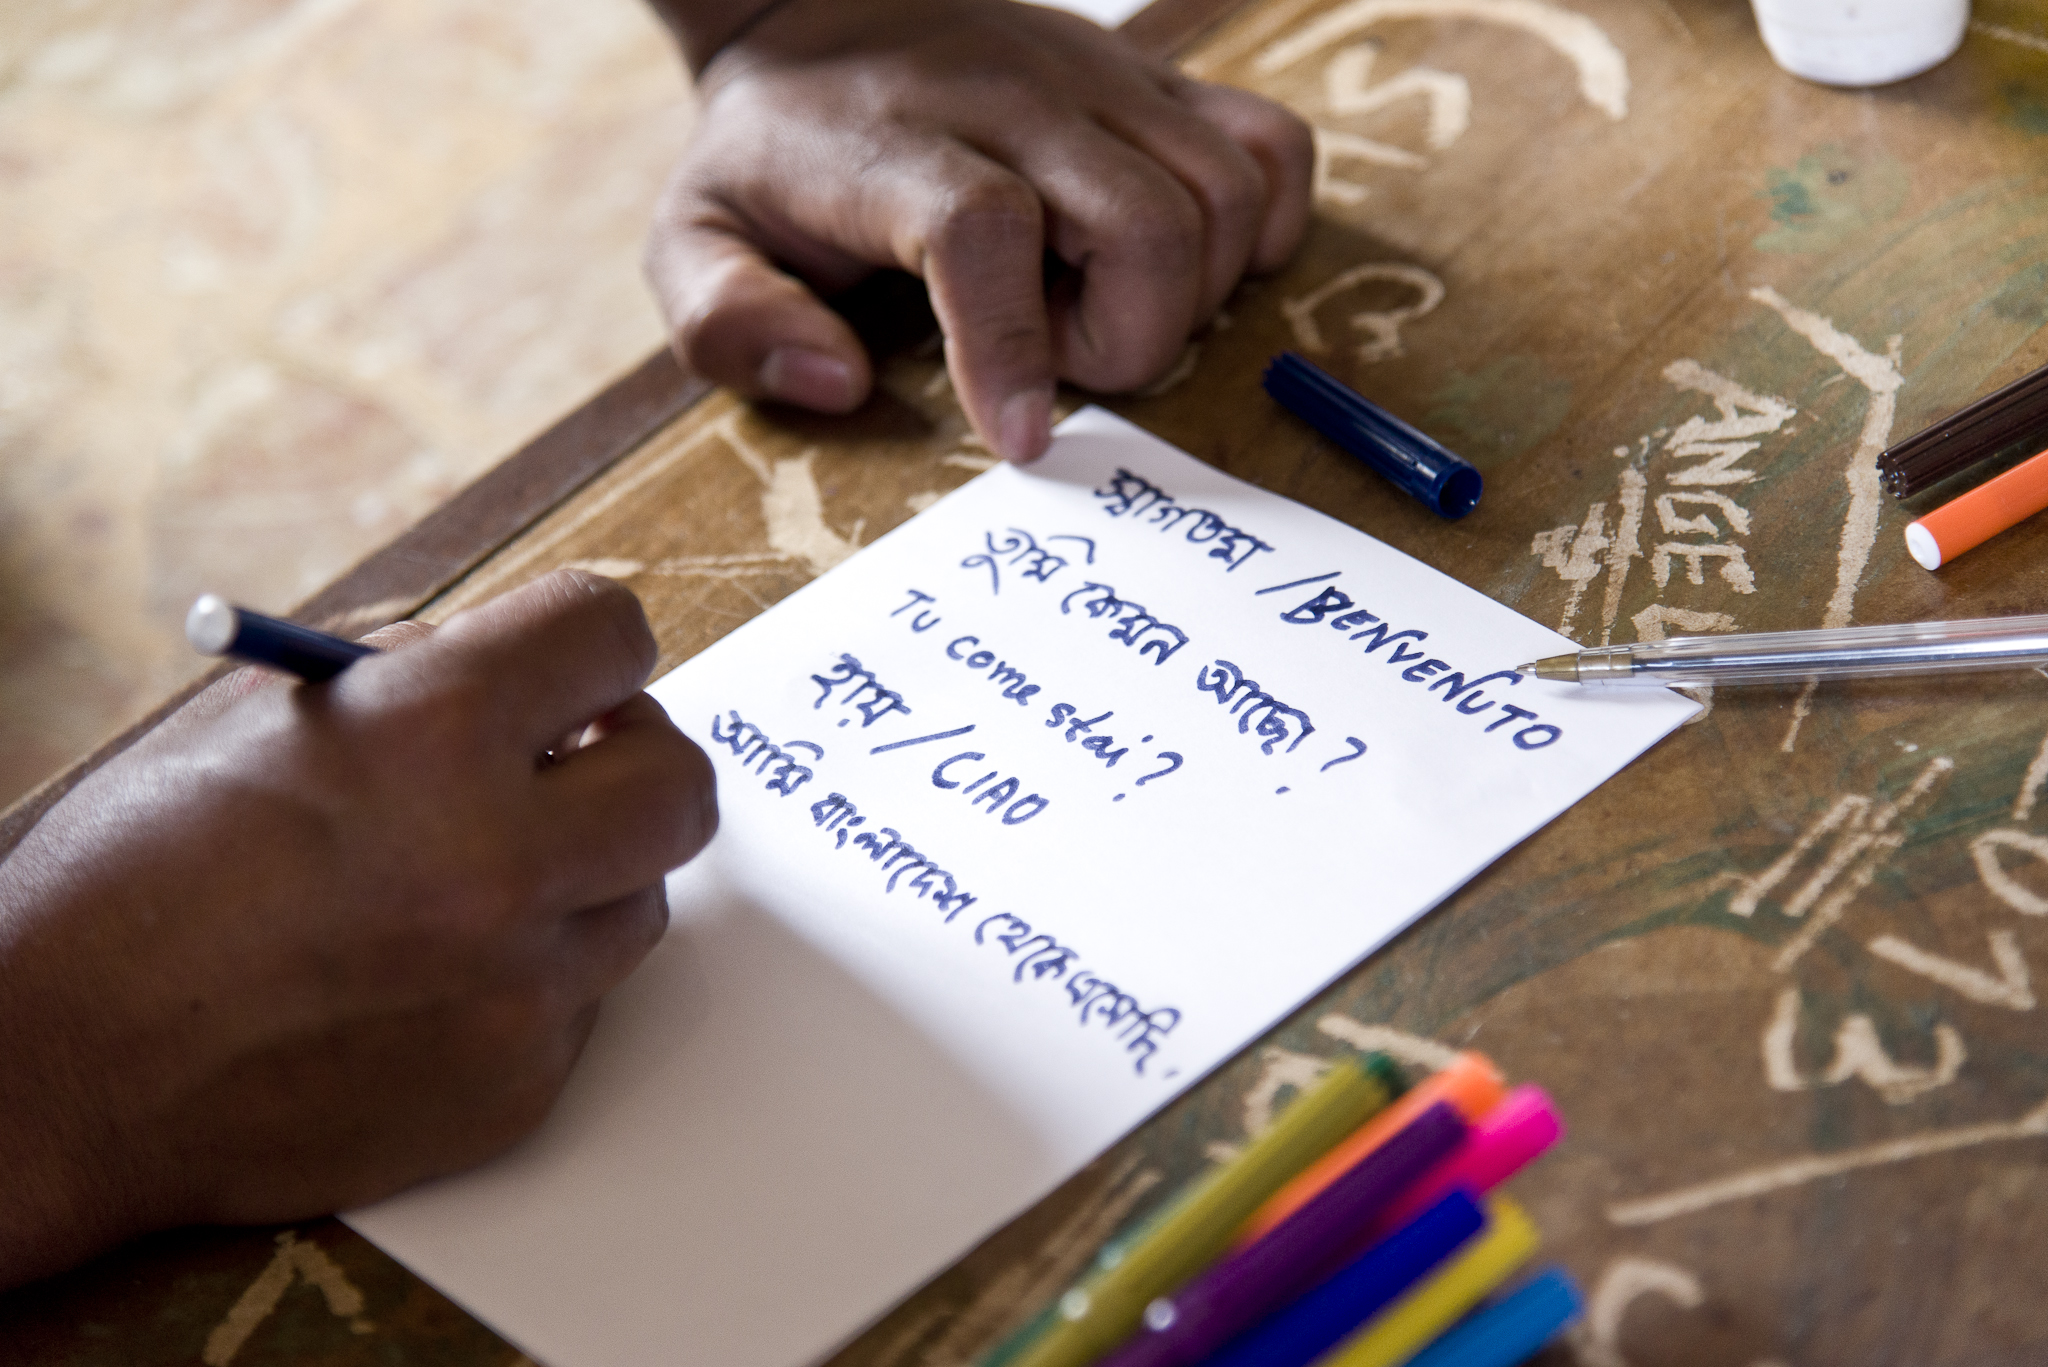 স্বাগতম / BENVENUTO
তুমি কেমন আছো ?
TU come stai ?
হায় / CIAO
আমি বাংলাদেশ থেকে এসেছি.
ANGEL